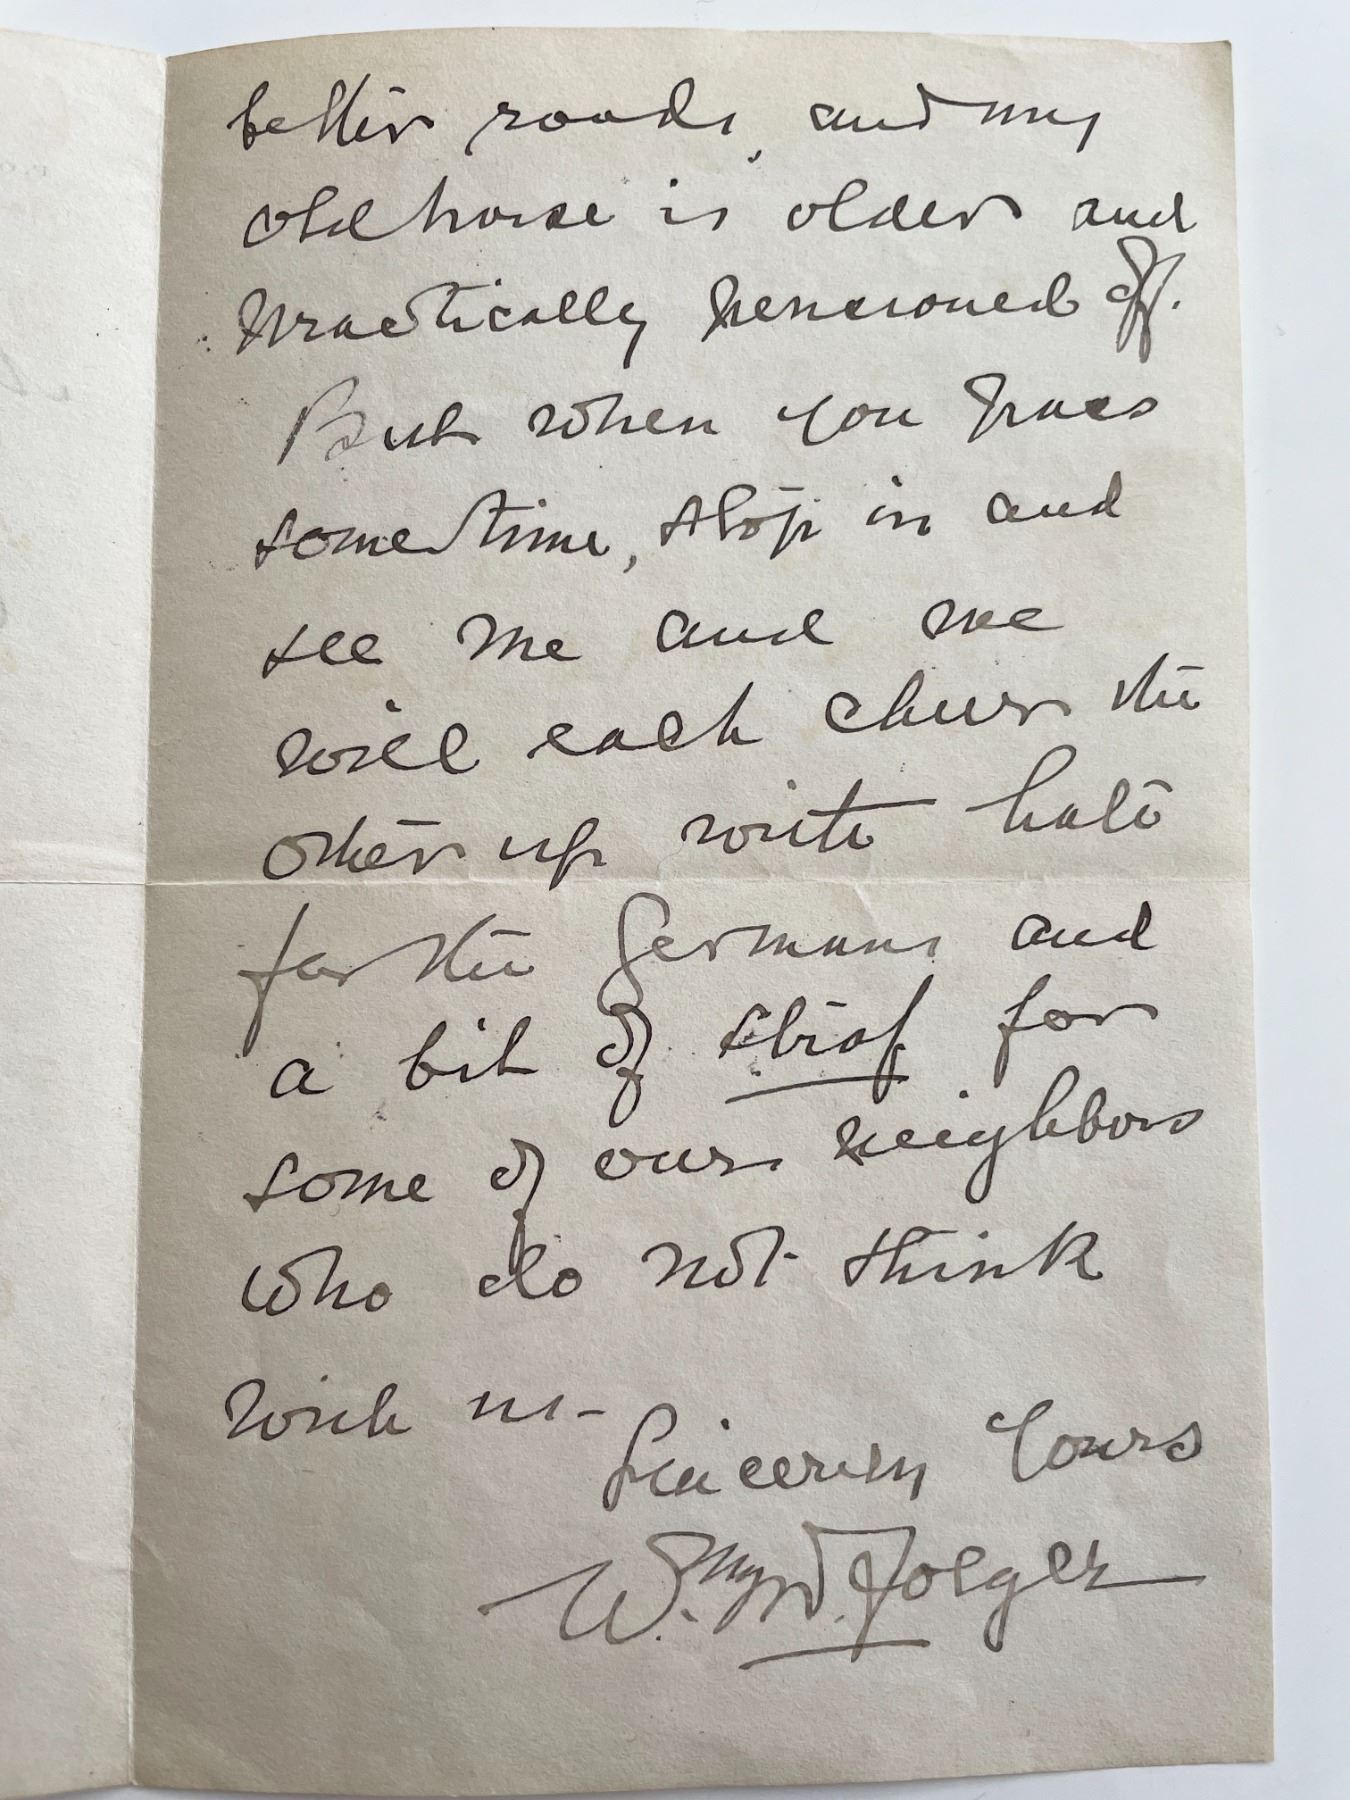 better roads, and my
old horse is older and
practically pensioned off.
But when you pass
sometime, stop in and
see me and we
will each cheer the
other up with hate
for the Germans and
a bit of straf for
some of our neighbors
who do not think
with us-
Sincerely Yours
W. Folger